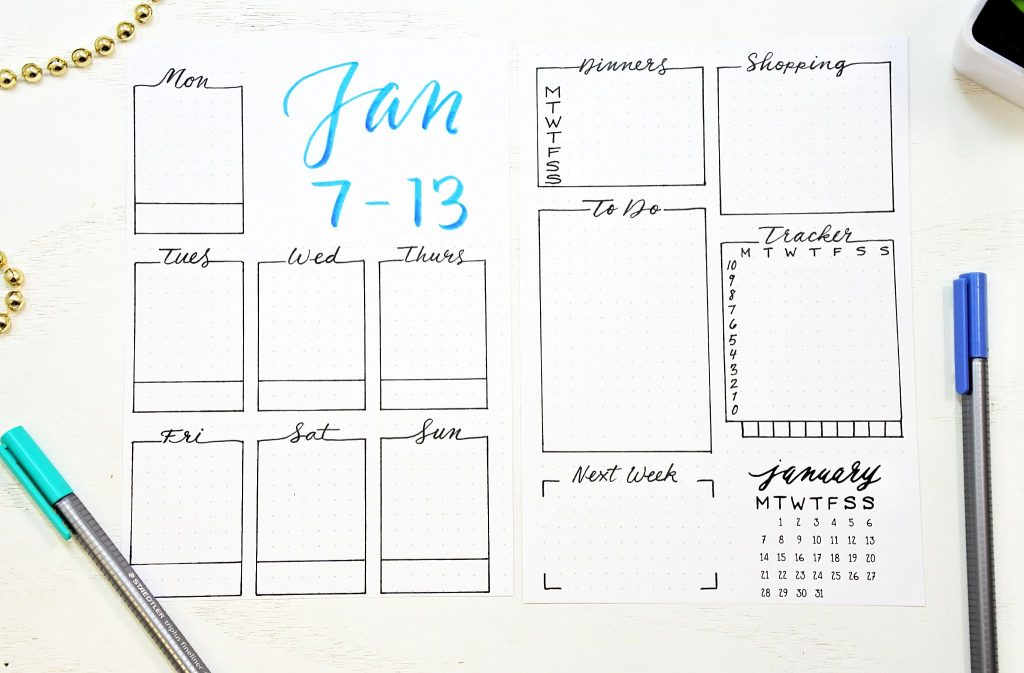 Mon
Jan
7-13
Tues Wed Thurs
Fri Sat Sun
Dinners
M
T
W
T
F
S
S
Shopping
To Do
Tracker
M T W T F S S
10
9
8
7
6
5
4
3
2
1
0
Next Week
january
M T W T F S S
1 2 3 4 5 6
7 8 9 10 11 12 13
14 15 16 17 18 19 20
21 22 23 24 25 26 27
28 29 30 31
STAEDTLER triplus fineliner